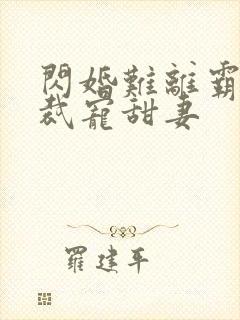 閃婚難離霸
裁寵甜妻
羅建平